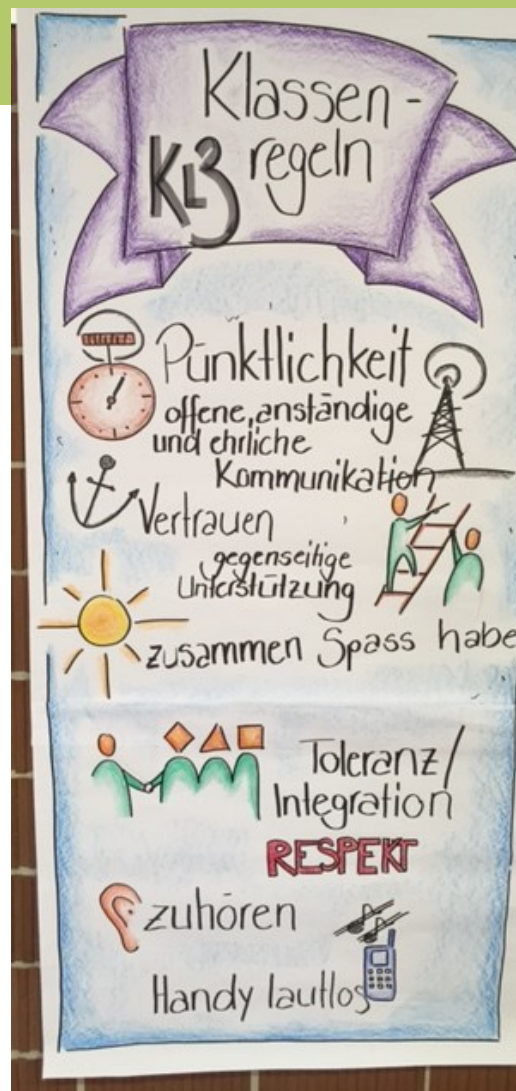 Klassen-
regeln
KL3
Pünktlichkeit
offene, anständige
und ehrliche
Kommunikation
Vertrauen
gegenseitige
Unterstützung
zusammen Spass habe
Toleranz/
Integration
RESPEKT
zuhören
Handy lautlos